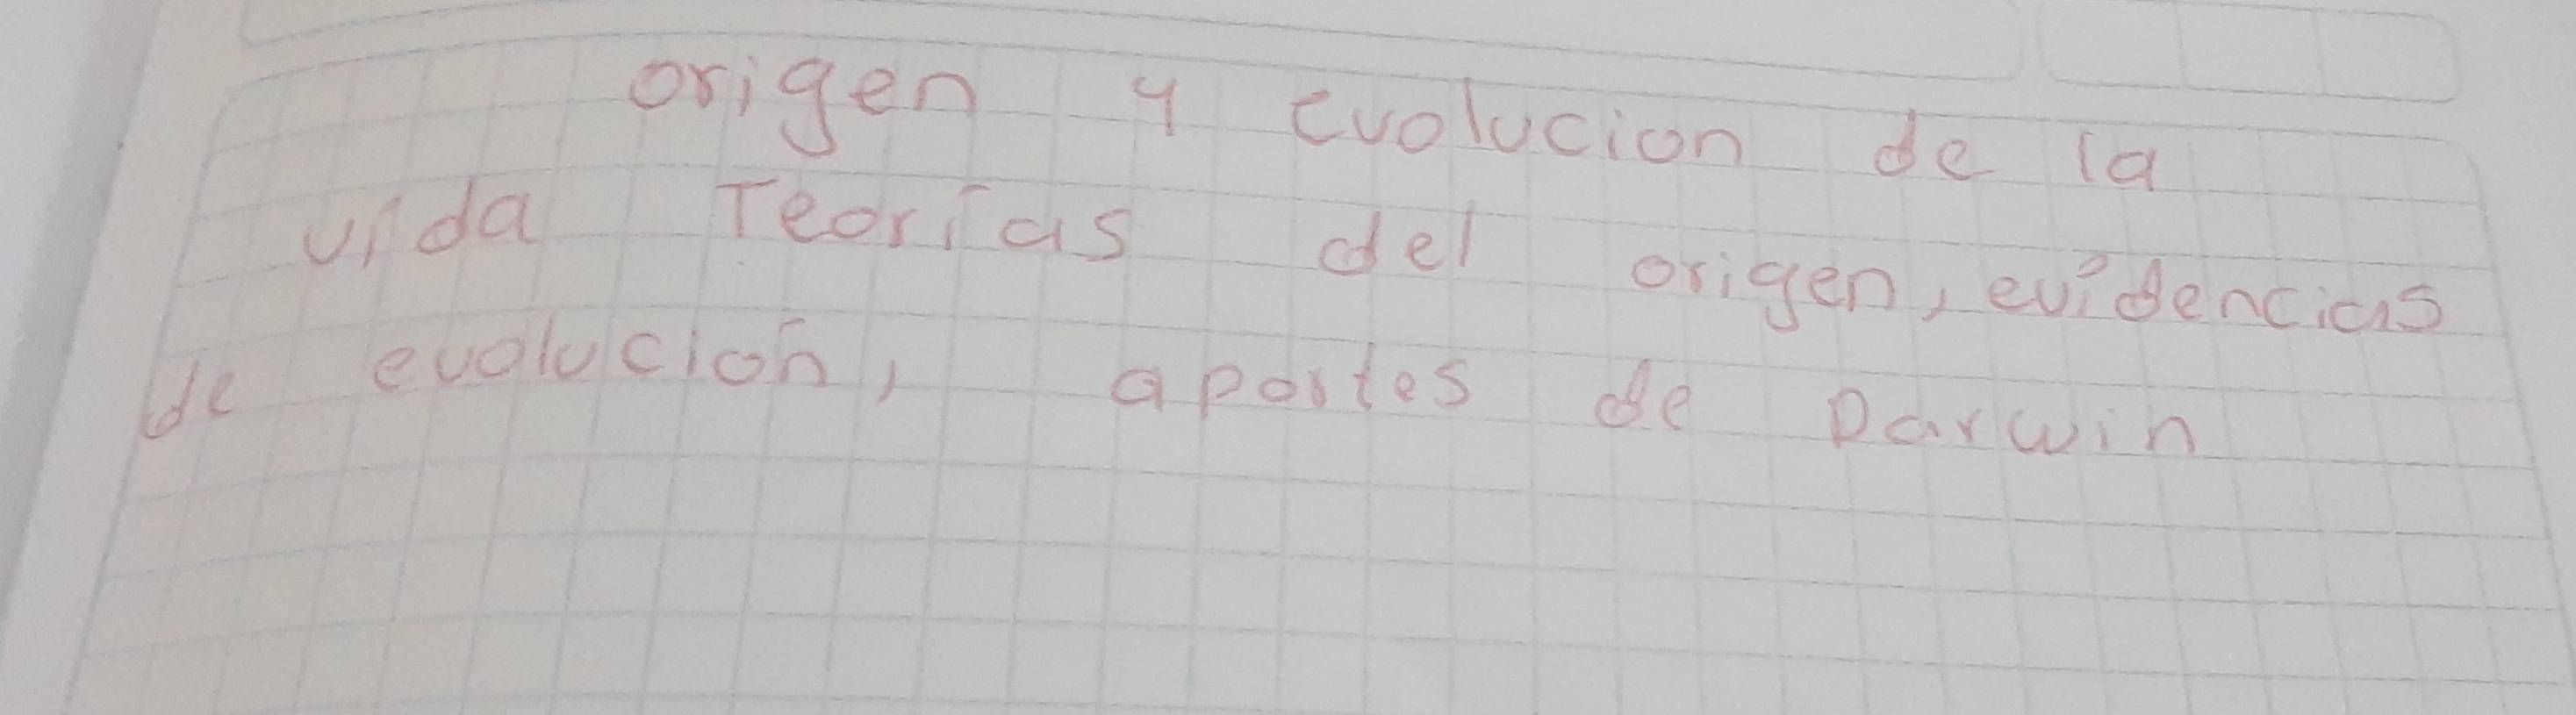 origen y evolucion de la
vida Teorías del origen, evidencias
de evolución, aportes de Darwin